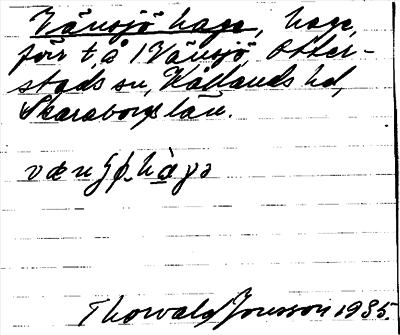 Vänsjö hage, hage,
förr t, å 1 Vänsjö, Otter-
stads sn, Kållands hd,
Skaraborgs län.
vænʃø hàgə
Thorvald Jonsson 1935.